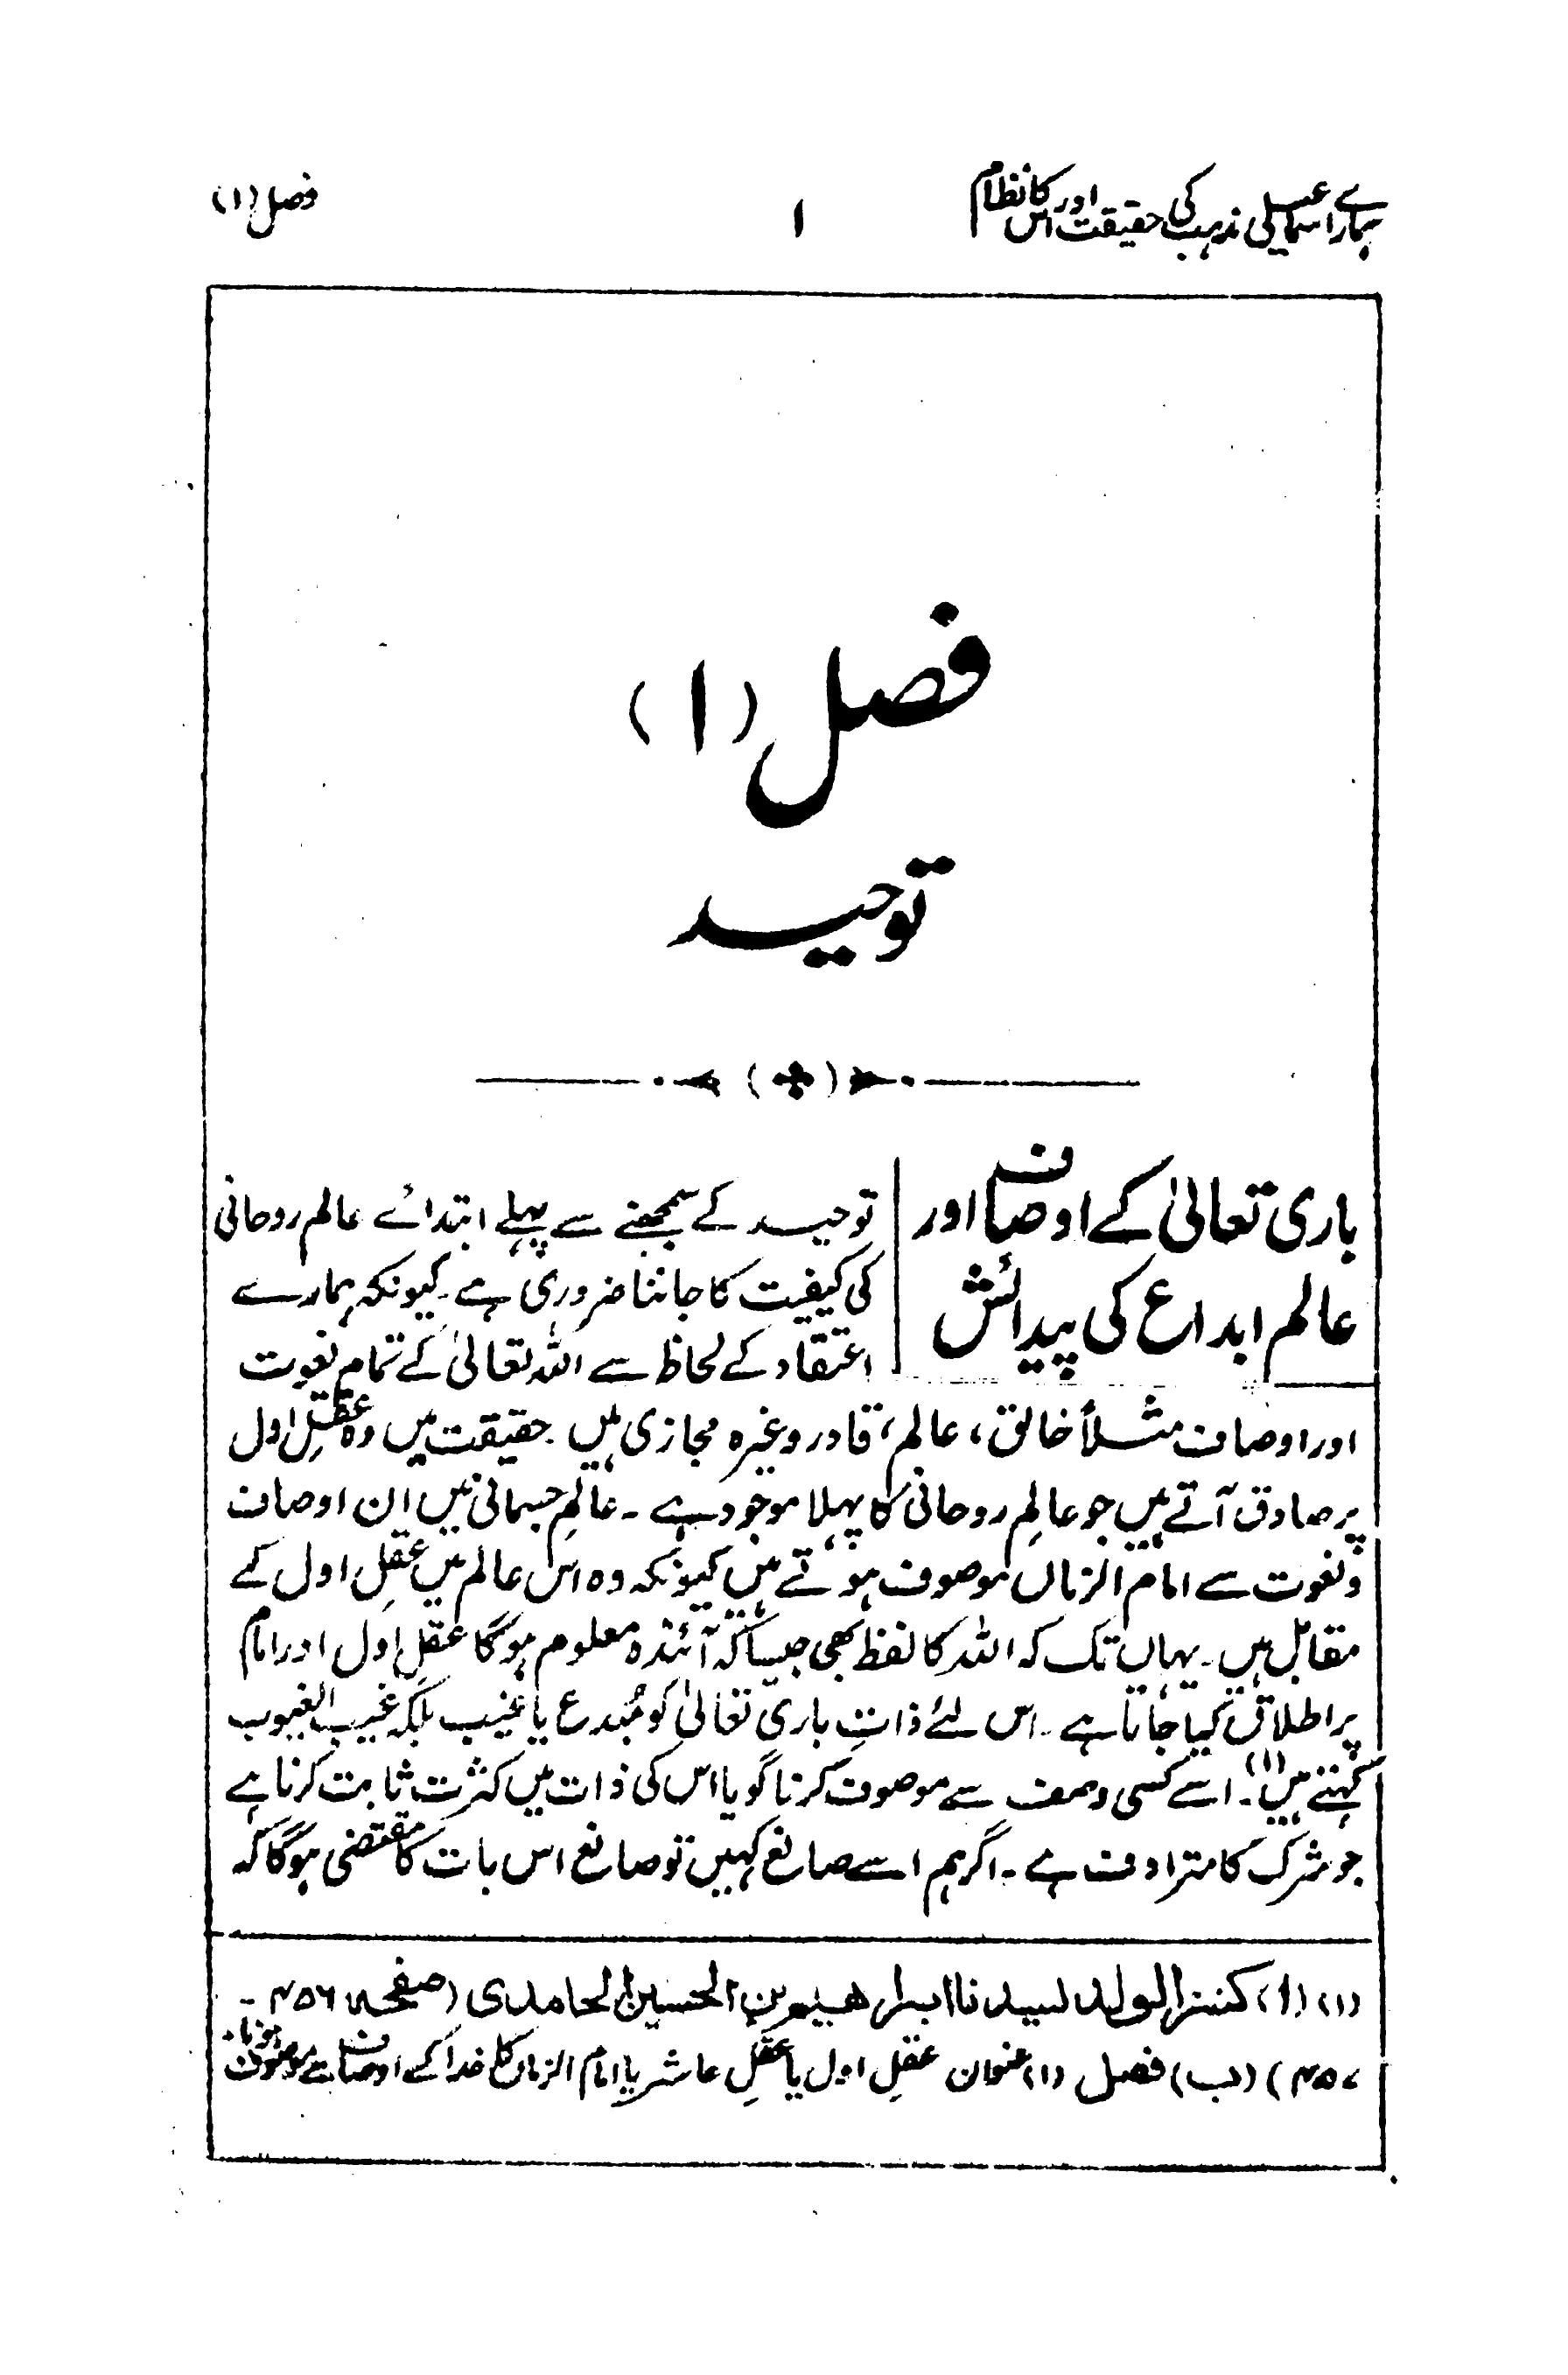 ہمارے اسماعیلی مذہب کی حقیقت اور اس کا نظام
۱
فصل (۱)
فصل (۱)
توحید
باری تعالیٰ کے اوصاف اور
عالم ابداع کی پیدائش
توحید کے سمجھنے سے پہلے ابتدائے عالم روحانی
کی کیفیت کا جاننا ضروری ہے۔ کیونکہ ہمارے
اعتقاد کے لحاظ سے اللہ تعالیٰ کے تمام نعوت
اور اوصاف مثلاً خالق، عالم، قادر وغیرہ مجازی ہیں۔ حقیقت میں وہ عقلِ اول
پر صادق آتے ہیں جو عالمِ روحانی کا پہلا موجود ہے۔ عالمِ جسمانی میں ان اوصاف
ونعوت سے امام الزماں موصوف ہوتے ہیں کیونکہ وہ اس عالم میں عقلِ اول کے
مقابل ہیں۔ یہاں تک کہ اللہ کا لفظ بھی جیسا کہ آئندہ معلوم ہوگا عقلِ اول اور امام
پر اطلاق کیا جاتا ہے۔ اس لئے ذاتِ باری تعالیٰ کو مُبدع یا غیب بلکہ غیب الغیوب
کہتے ہیں(۱)۔ اسے کسی وصف سے موصوف کرنا گویا اس کی ذات میں کثرت ثابت کرنا ہے
جو شرک کا مترادف ہے۔ اگر ہم اسے صانع کہیں تو صانع اس بات کا مقتضی ہوگا کہ
(۱) (ا) کنزالولد لسیدنا ابراھیم بن الحسین الحامدی (صفحہ ۴۵۶ -
۴۵۷) (ب) فصل (۱) عنوان عقلِ اول یا عقلِ عاشر یا امام الزماں کا خدا کے اوصاف سے موصوف ہونا۔